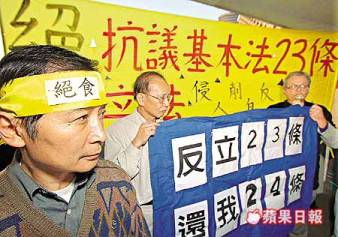 絕
抗議基本法23條
立法
侵
剝
反
人
絕食
反立23條
還我24條
蘋果日報